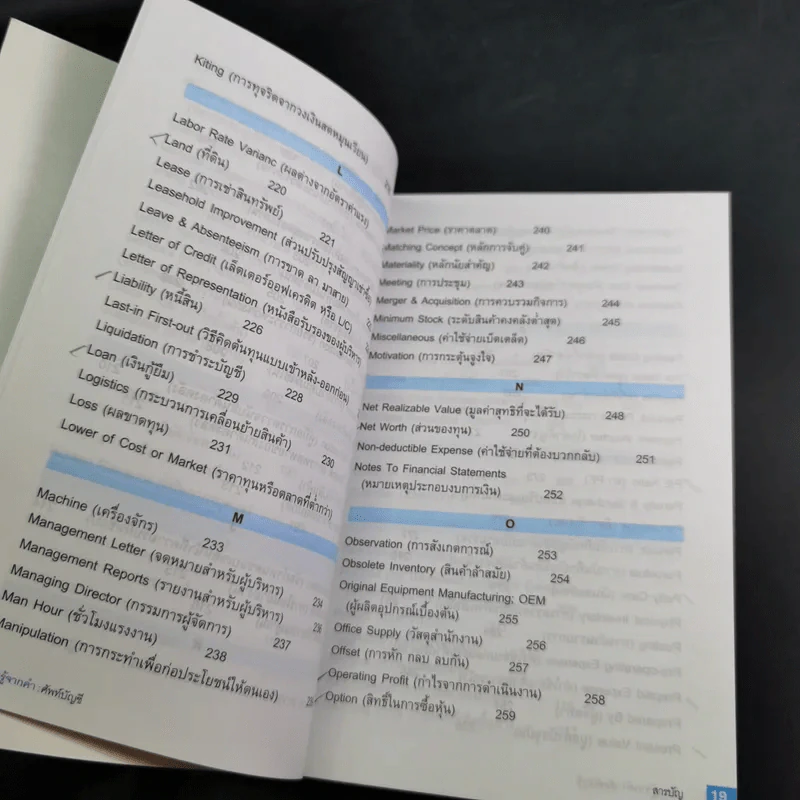 Kiting (การทุจริตจากวงเงินสดหมุนเวียน)
L
Labor Rate Varianc (ผลต่างจากอัตราค่าแรง)
Land (ที่ดิน) 220
Lease (การเช่าสินทรัพย์) 221
Leasehold Improvement (ส่วนปรับปรุงสัญญาเช่า
Leave & Absenteeism (การขาด ลา มาสาย)
Letter of Credit (เล็ตเตอร์ออฟเครดิต หรือ L/C)
Letter of Representation (หนังสือรับรองของผู้บริหาร)
Liability (หนี้สิน) 226
Last-in First-out (วิธีคิดต้นทุนแบบเข้าหลัง-ออกก่อน)
Liquidation (การชำระบัญชี) 228
Loan (เงินกู้ยืม) 229
Logistics (กระบวนการเคลื่อนย้ายสินค้า) 230
Loss (ผลขาดทุน) 231
Lower of Cost or Market (ราคาทุนหรือตลาดที่ต่ำกว่า)
M
Machine (เครื่องจักร) 233
Management Letter (จดหมายสำหรับผู้บริหาร) 234
Management Reports (รายงานสำหรับผู้บริหาร) 236
Managing Director (กรรมการผู้จัดการ) 237
Man Hour (ชั่วโมงแรงงาน) 238
Manipulation (การกระทำเพื่อก่อประโยชน์ให้ตนเอง)
รู้จากคำ : ศัพท์บัญชี
Market Price (ราคาตลาด) 240
Matching Concept (หลักการจับคู่) 241
Materiality (หลักนัยสำคัญ) 242
Meeting (การประชุม) 243
Merger & Acquisition (การควบรวมกิจการ) 244
Minimum Stock (ระดับสินค้าคงคลังต่ำสุด) 245
Miscellaneous (ค่าใช้จ่ายเบ็ดเตล็ด) 246
Motivation (การกระตุ้นจูงใจ) 247
N
Net Realizable Value (มูลค่าสุทธิที่จะได้รับ) 248
Net Worth (ส่วนของทุน) 250
Non-deductible Expense (ค่าใช้จ่ายที่ต้องบวกกลับ) 251
Notes To Financial Statements
(หมายเหตุประกอบงบการเงิน) 252
O
Observation (การสังเกตการณ์) 253
Obsolete Inventory (สินค้าล้าสมัย) 254
Original Equipment Manufacturing; OEM
(ผู้ผลิตอุปกรณ์เบื้องต้น) 255
Office Supply (วัสดุสำนักงาน) 256
Offset (การหัก กลบ ลบกัน) 257
Operating Profit (กำไรจากการดำเนินงาน) 258
Option (สิทธิ์ในการซื้อหุ้น) 259
สารบัญ 19